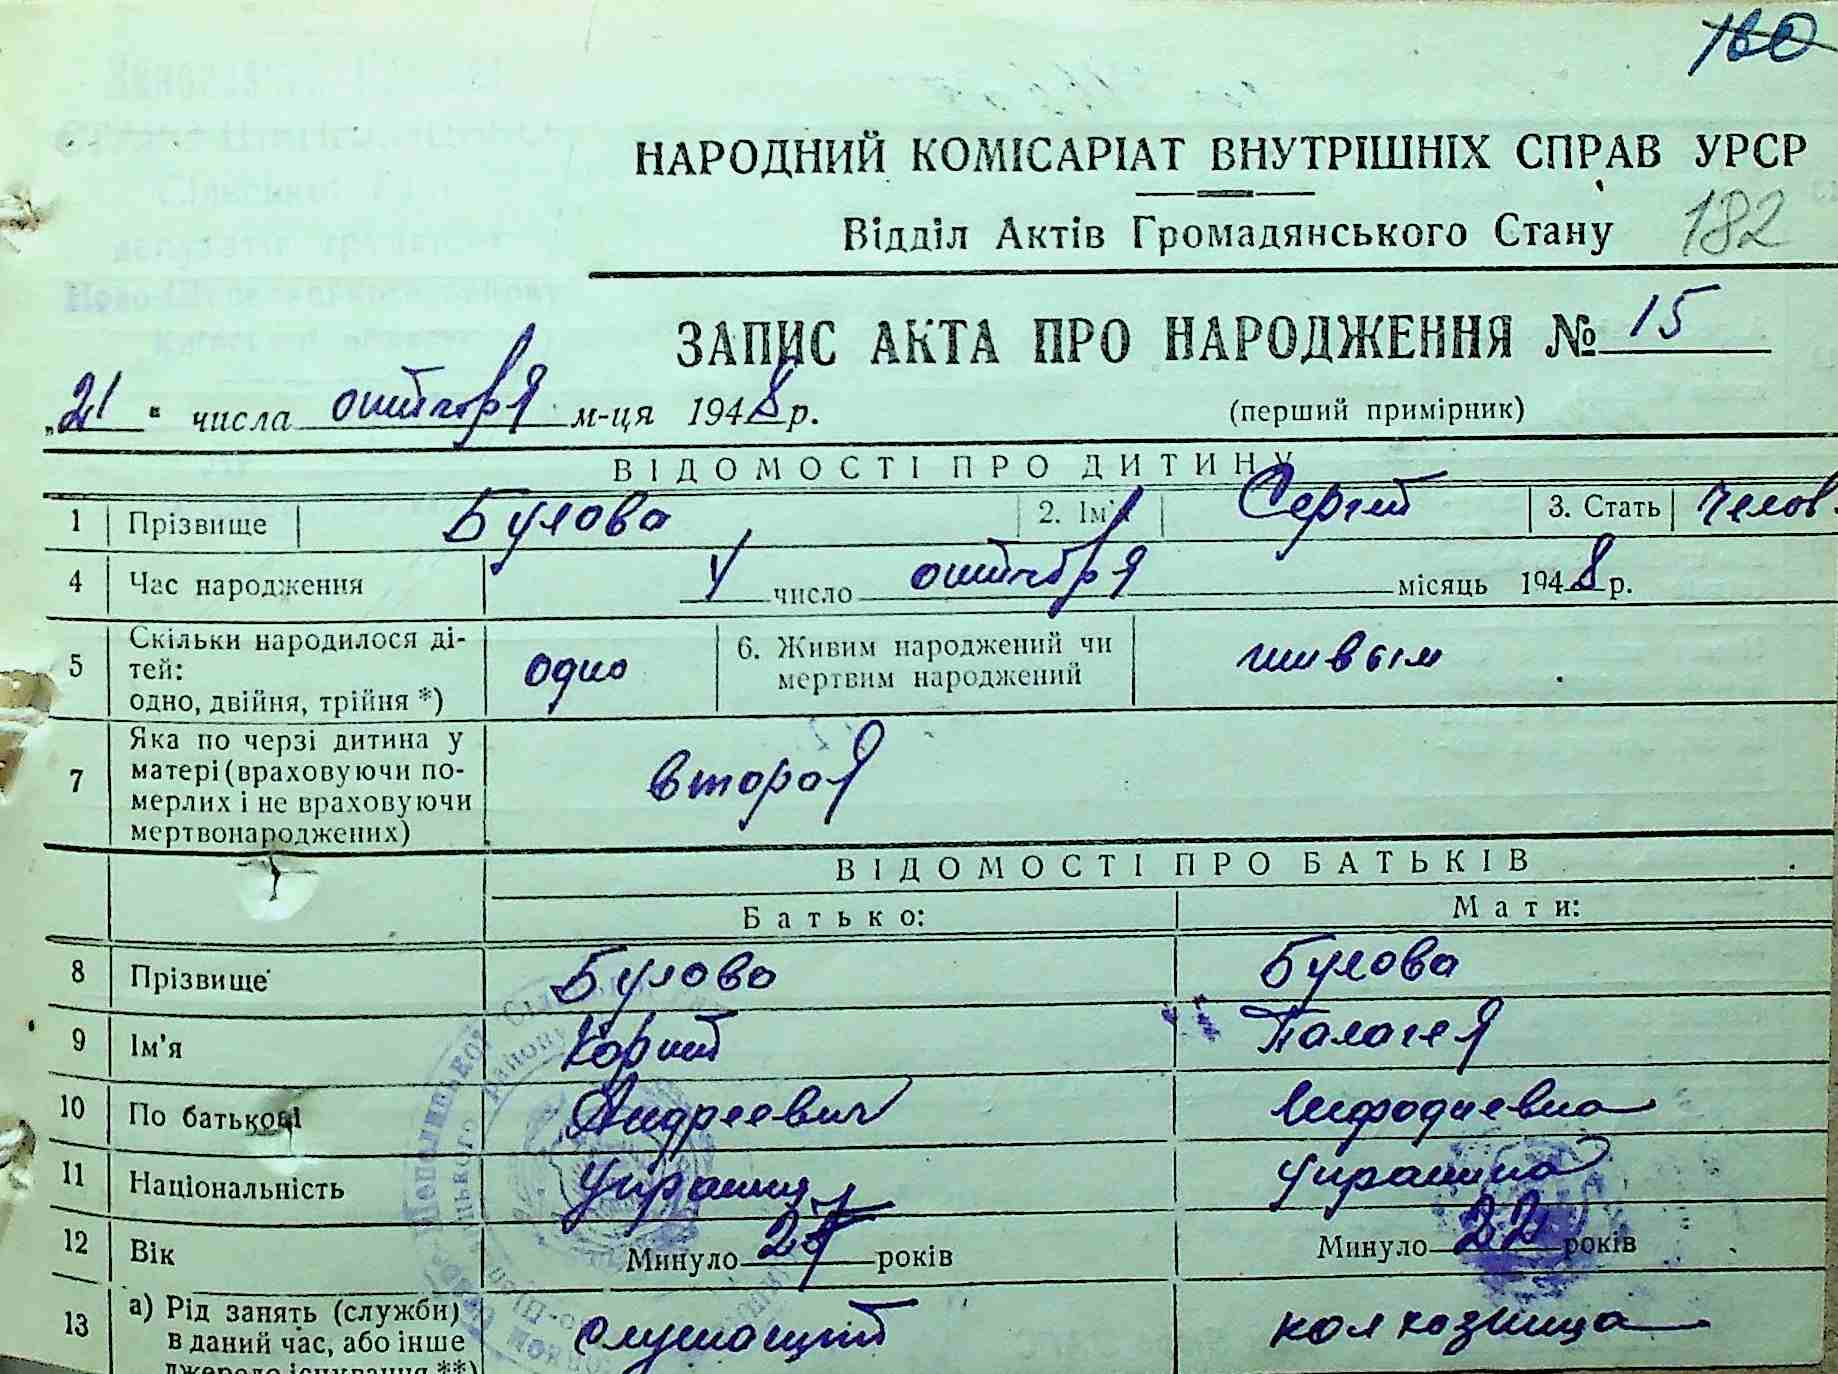 180
НАРОДНИЙ КОМІСАРІАТ ВНУТРІШНІХ СПРАВ УРСР
Відділ Актів Громадянського Стану 182
ЗАПИС АКТА ПРО НАРОДЖЕННЯ № 15
„21“ числа октября м-ця 1948 р. (перший примірник)
ВІДОМОСТІ ПРО ДИТИНУ
1 Прізвище Булова 2. Ім'я Сергей 3. Стать Челов.
4 Час народження 4 число октября місяць 1948 р.
5 Скільки народилося ді-
тей:
одно, двійня, трійня *) одно 6. Живим народжений чи
мертвим народжений живым
7 Яка по черзі дитина у
матері (враховуючи по-
мерлих і не враховуючи
мертвонароджених) вторая
ВІДОМОСТІ ПРО БАТЬКІВ
Батько: Мати:
8 Прізвище Булова Булова
9 Ім'я Палагея
10 По батькові Андреевич
11 Національність Украинец Украинка
12 Вік Минуло років Минуло 22 років
13 а) Рід занять (служби)
в даний час, або інше
джерело існування **) служащий колхозница